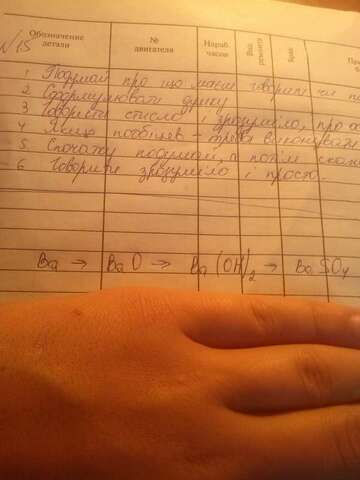 Обозначение детали
№ двигателя
Нараб. часов
Вид ремонта
Брак
При
N 15
1 Подумай про що маєш говорити чи п
2 Сформулювати думку
3 Говорити стисло і зрозуміло, про
4 Якщо пообіцяв – треба виконувати
5 Спочатку подумай, а потім скажи
6 Говорити зрозуміло і просто.
Ba → BaO → Ba(OH)₂ → BaSO₄